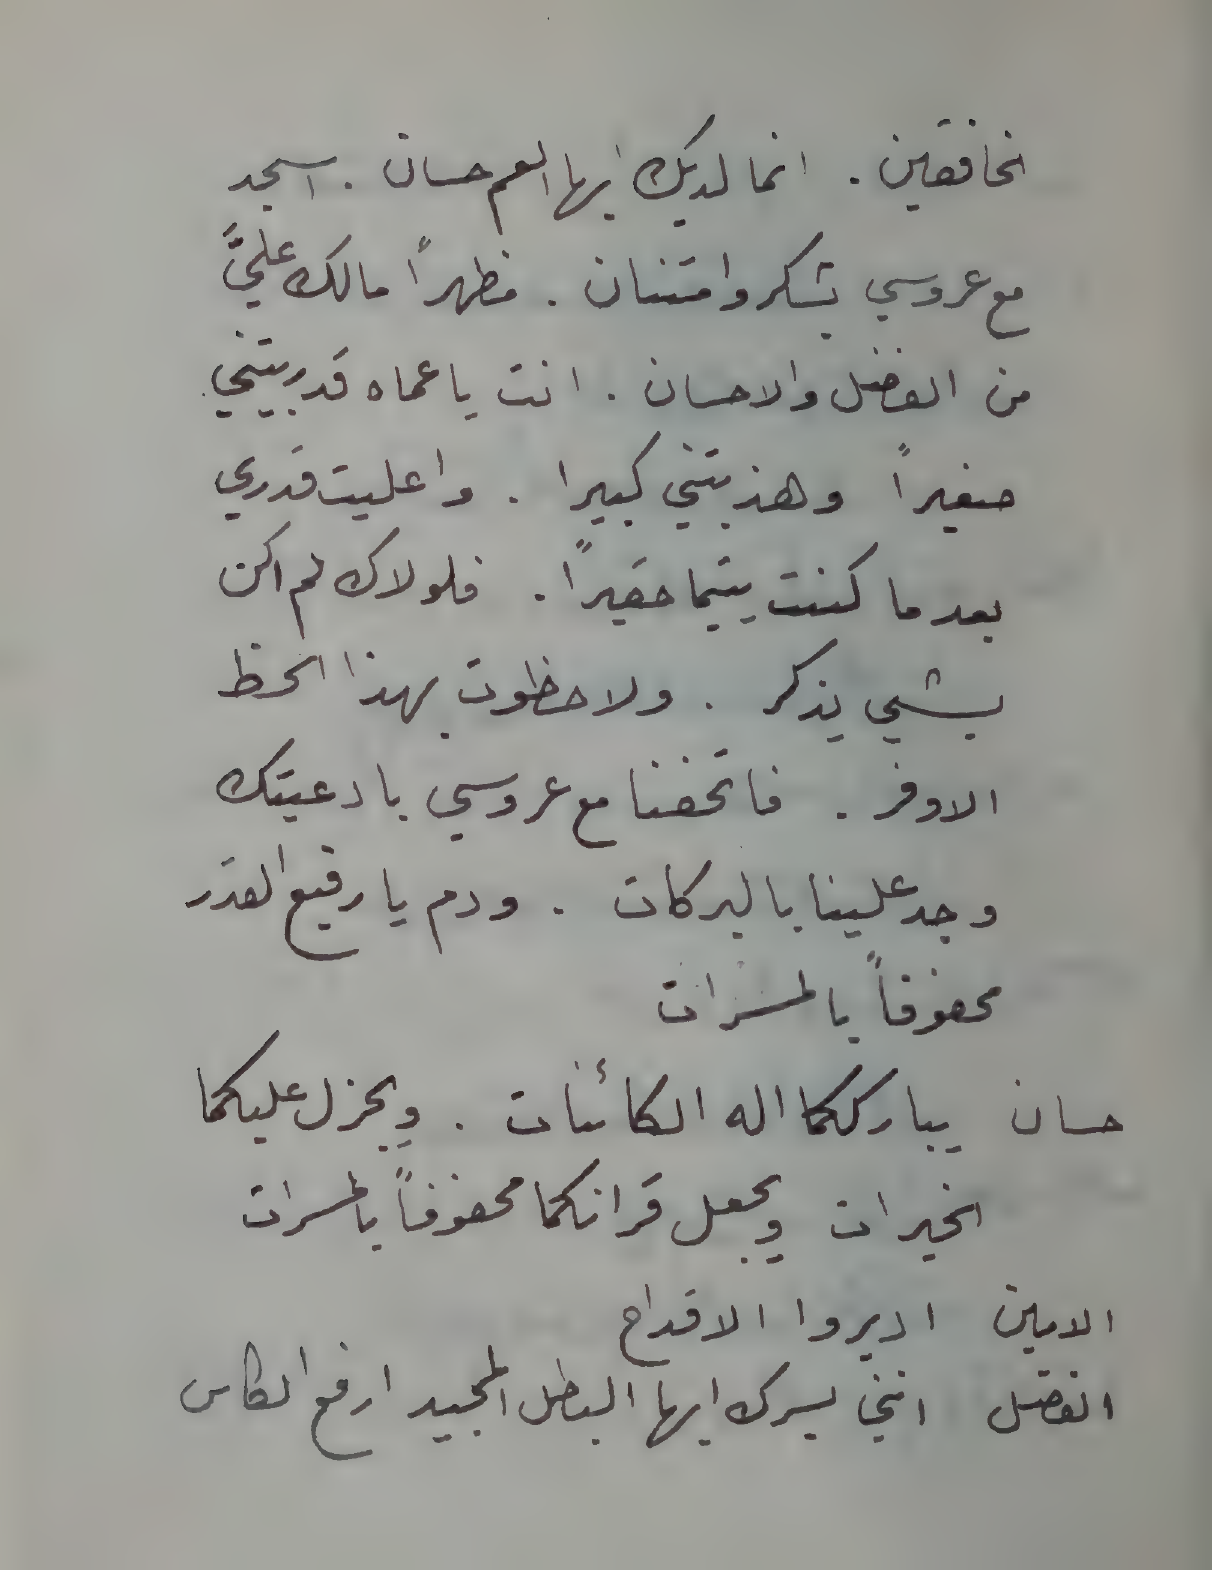 الخافقين . انما لديك ايها العم حسان . اسجد
مع عروسي بشكر وامتنان . مظهراً مالك عليَّ
من الفضل والاحسان . انت يا عماه قد ربيتني
صغيراً وهذبتني كبيرا . واعليت قدري
بعد ما كنت يتيما حقيراً . فلولاك لم اكن
بشيء يذكر . ولا حظوت بهذا الحظ
الاوفر . فاتحفنا مع عروسي بادعيتك
وجد علينا بالبركات . ودم يا رفيع القدر
محفوفاً بالمسرات
حسان يبارككما اله الكائنات . ويجزل عليكما
الخيرات ويجعل قرانكما محفوفاً بالمسرات
الامين اديروا الاقداح
الفضل انني بسرك ايها البطل المجيد ارفع الكاس